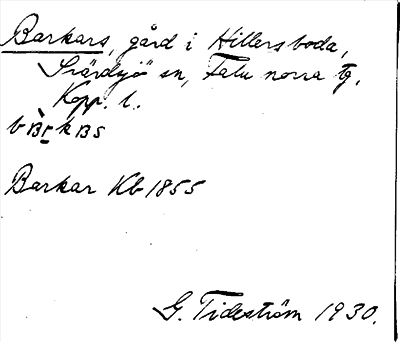 Barkars, gård i Hillersboda,
Svärdsjö sn, Falu norra tg,
Kopp. l.
Barkar Kb 1855
G. Tideström 1930.